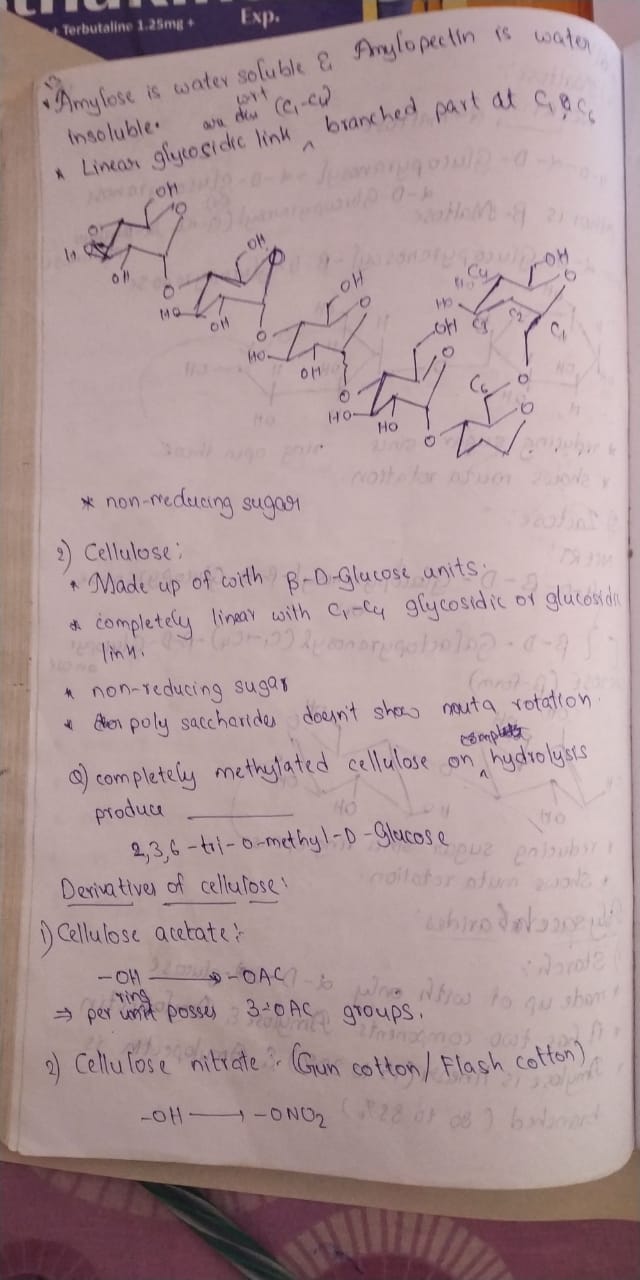 Terbutaline 1.25mg +
Exp.
* Amylose is water soluble & Amylopectin is water
insoluble.
wrt
(C1-C4)
* Linear glycosidic link ^ branched part at C1 & C6
OH
O
OH
O
OH
O
HO
OH
OH
O
O
HO
OH
OH
O
C4
OH
O
HO
HO
C3
C2
C1
OH
O
C6
O
O
HO
HO
O
O
* non-reducing sugar
2) Cellulose:
* Made up of with β-D-Glucose units.
* completely linear with C1-C4 glycosidic or glucosidic
link.
* non-reducing sugar
* poly saccharides doesn't show muta rotation.
complete
Q) completely methylated cellulose on ^ hydrolysis
produce ________
2,3,6-tri-o-methyl-D-Glucose
Derivatives of cellulose:
1) Cellulose acetate:-
-OH ⟶ -OAC
ring
⇒ per unit posses 3-OAC groups.
2) Cellulose nitrate:- (Gun cotton/ Flash cotton)
-OH ⟶ -ONO2